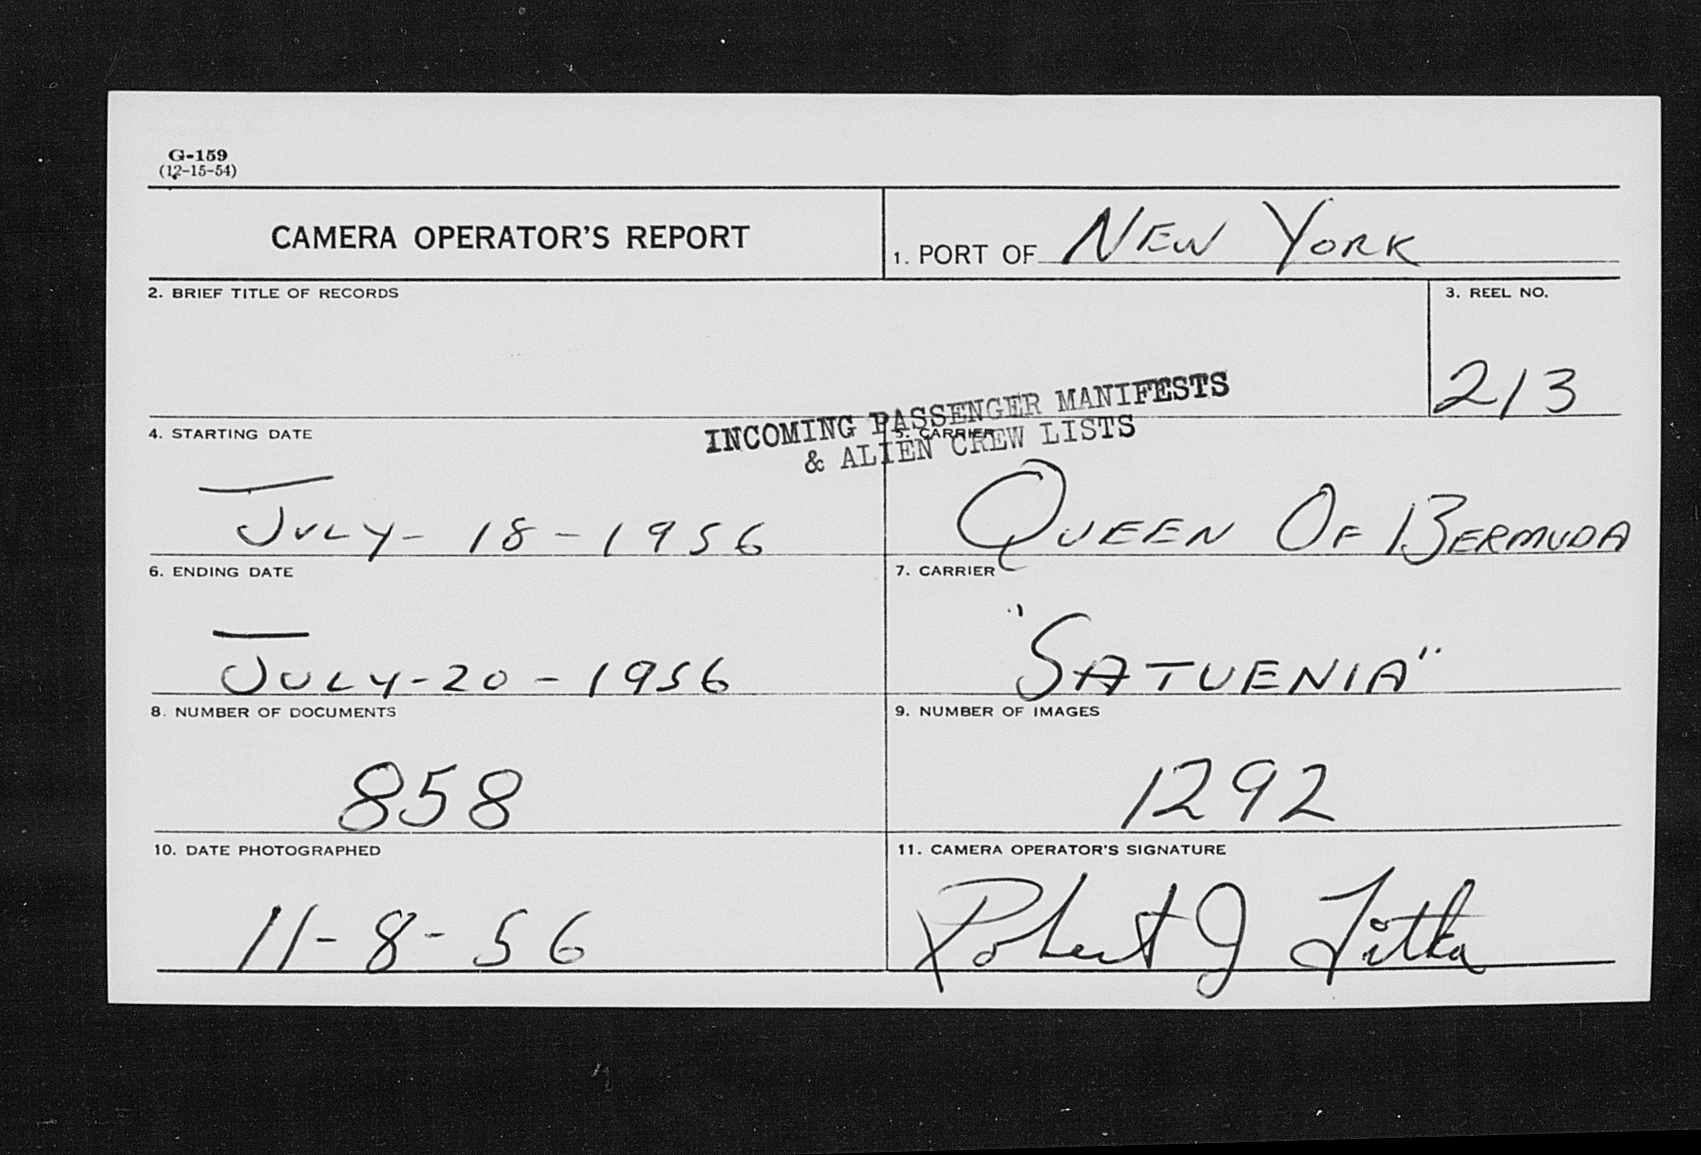 G-159
(12-15-54)
CAMERA OPERATOR'S REPORT
1. PORT OF NEW YORK
2. BRIEF TITLE OF RECORDS
INCOMING PASSENGER MANIFESTS
& ALIEN CREW LISTS
3. REEL NO.
213
4. STARTING DATE
JULY-18-1956
5. CARRIER
QUEEN OF BERMUDA
6. ENDING DATE
JULY-20-1956
7. CARRIER
"SATUENIA"
8. NUMBER OF DOCUMENTS
858
9. NUMBER OF IMAGES
1292
10. DATE PHOTOGRAPHED
11-8-56
11. CAMERA OPERATOR'S SIGNATURE
Robert J